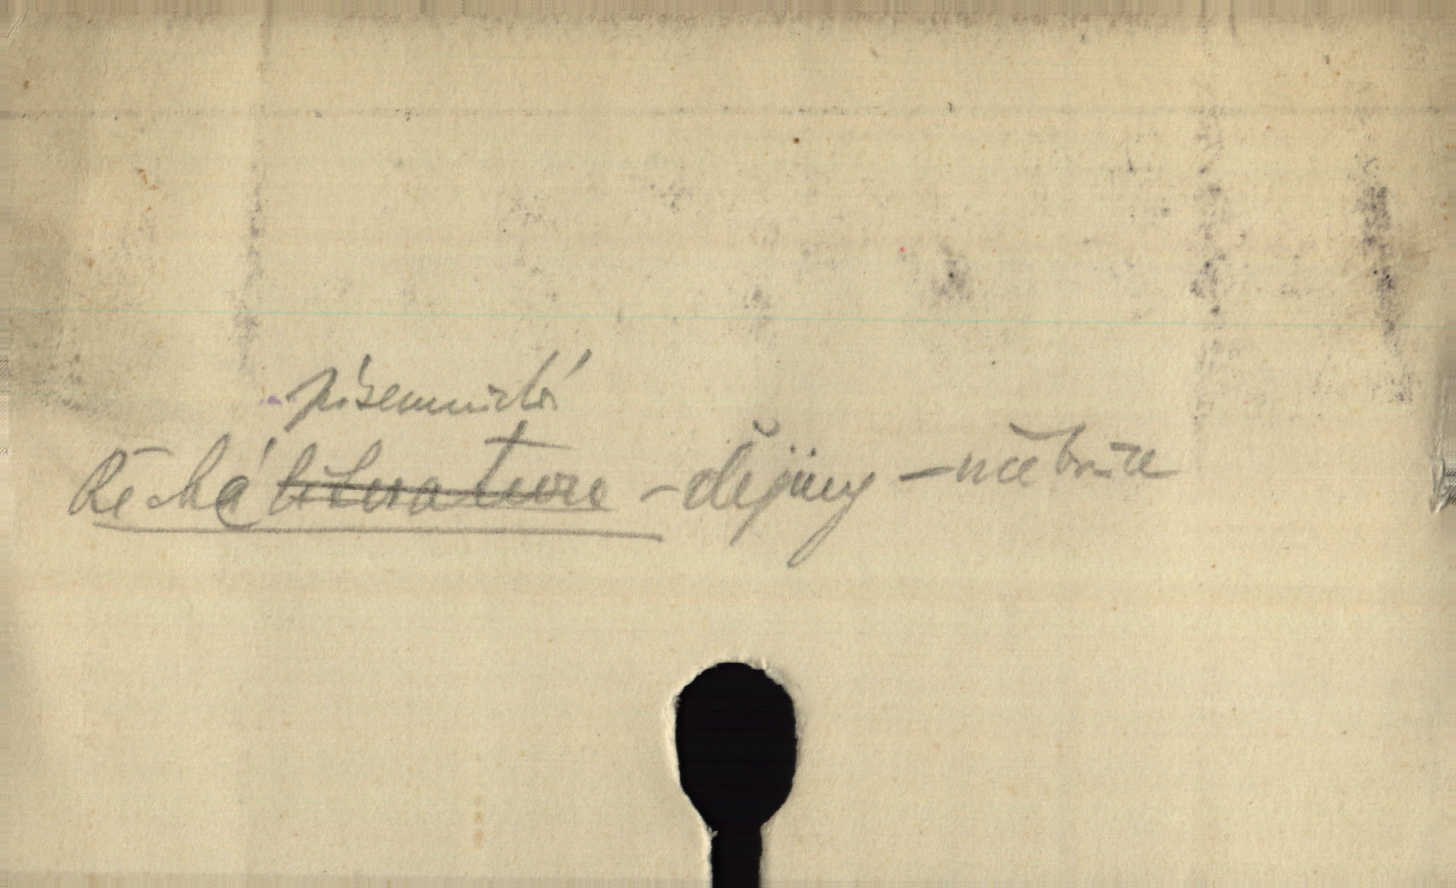 písemnictví
Řecká literatura - dějiny - učebnice